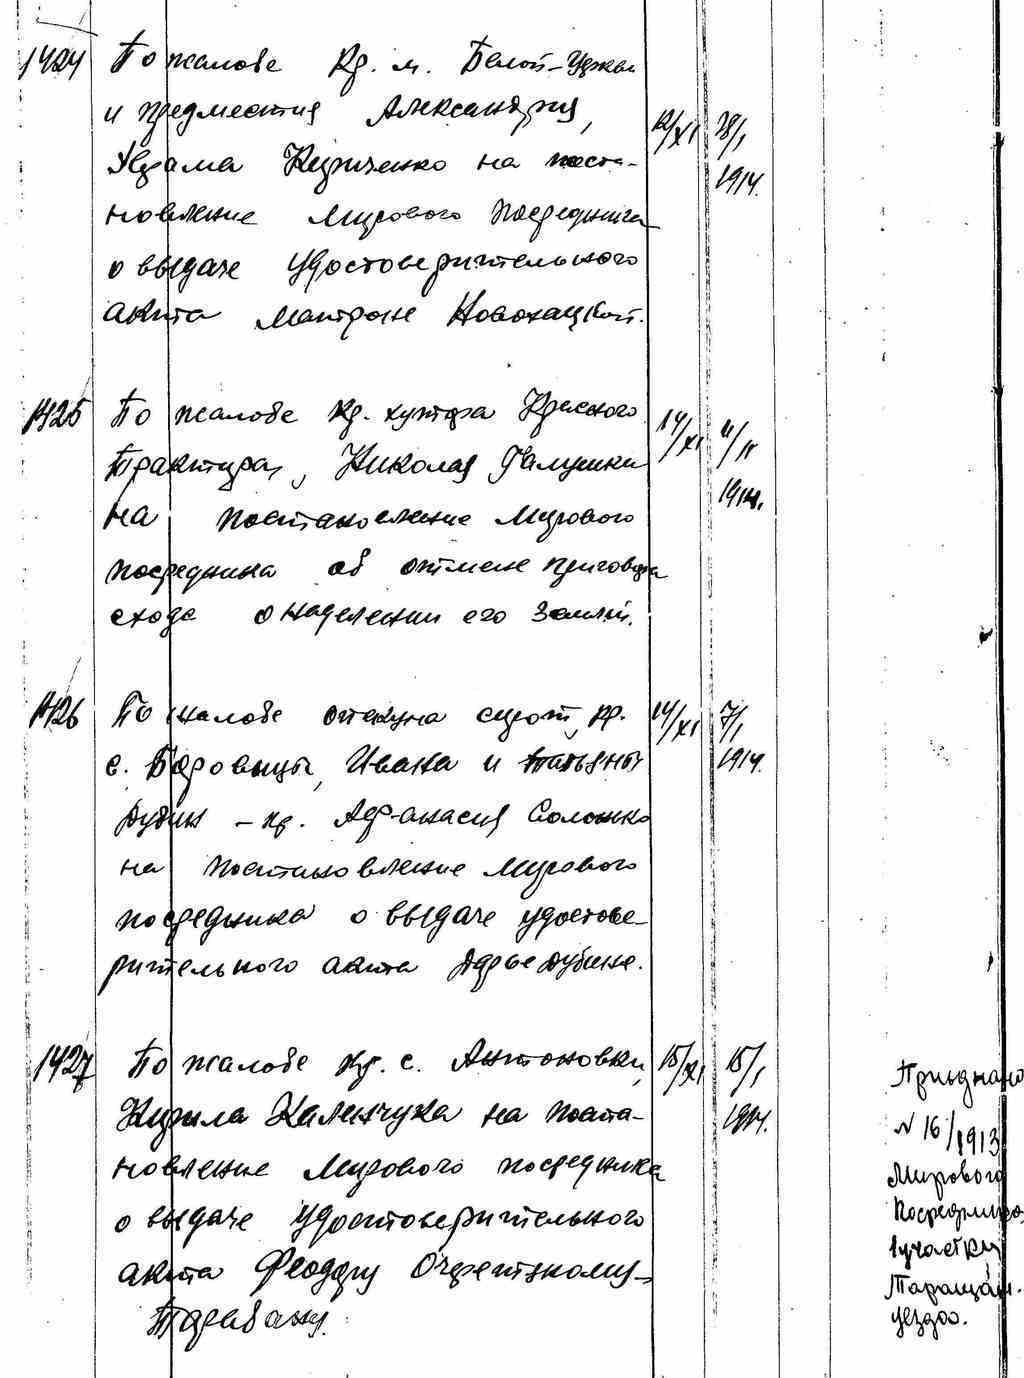 1424 По жалобе Кр. м. Белой-Церкви
и предместия Александрия,
Адама Кириченко на поста- 12/XI 28/I
новление Мирового Посредника 1914.
о выдаче удостоверительного
акта Мактроне Новохацкой.
1425 По жалобе Кр. хутора Красного
Трактира, Николая Галушки 14/XI 11/II
на постановление Мирового 1914.
посредника об отмене приговора
схода о наделении его землей.
1426 По жалобе опекуна сирот, кр.
с. Боровицы, Ивана и Татьяны 14/XI 7/I 1914.
Дубин - кр. Афанасия Солонько
на постановление Мирового
посредника о выдаче удостове-
рительного акта Дарье Дубине.
1427 По жалобе Кр. с. Антоновки, 15/XI 15/I
Кирила Калинчука на поста- 1914.
новление Мирового посредника
о выдаче удостоверительного
акта Феодору Очеретяному-
Тарабану.
Приєднано
N 16/1913
Мирового
Посредника
1 участку
Таращан.
уездо.